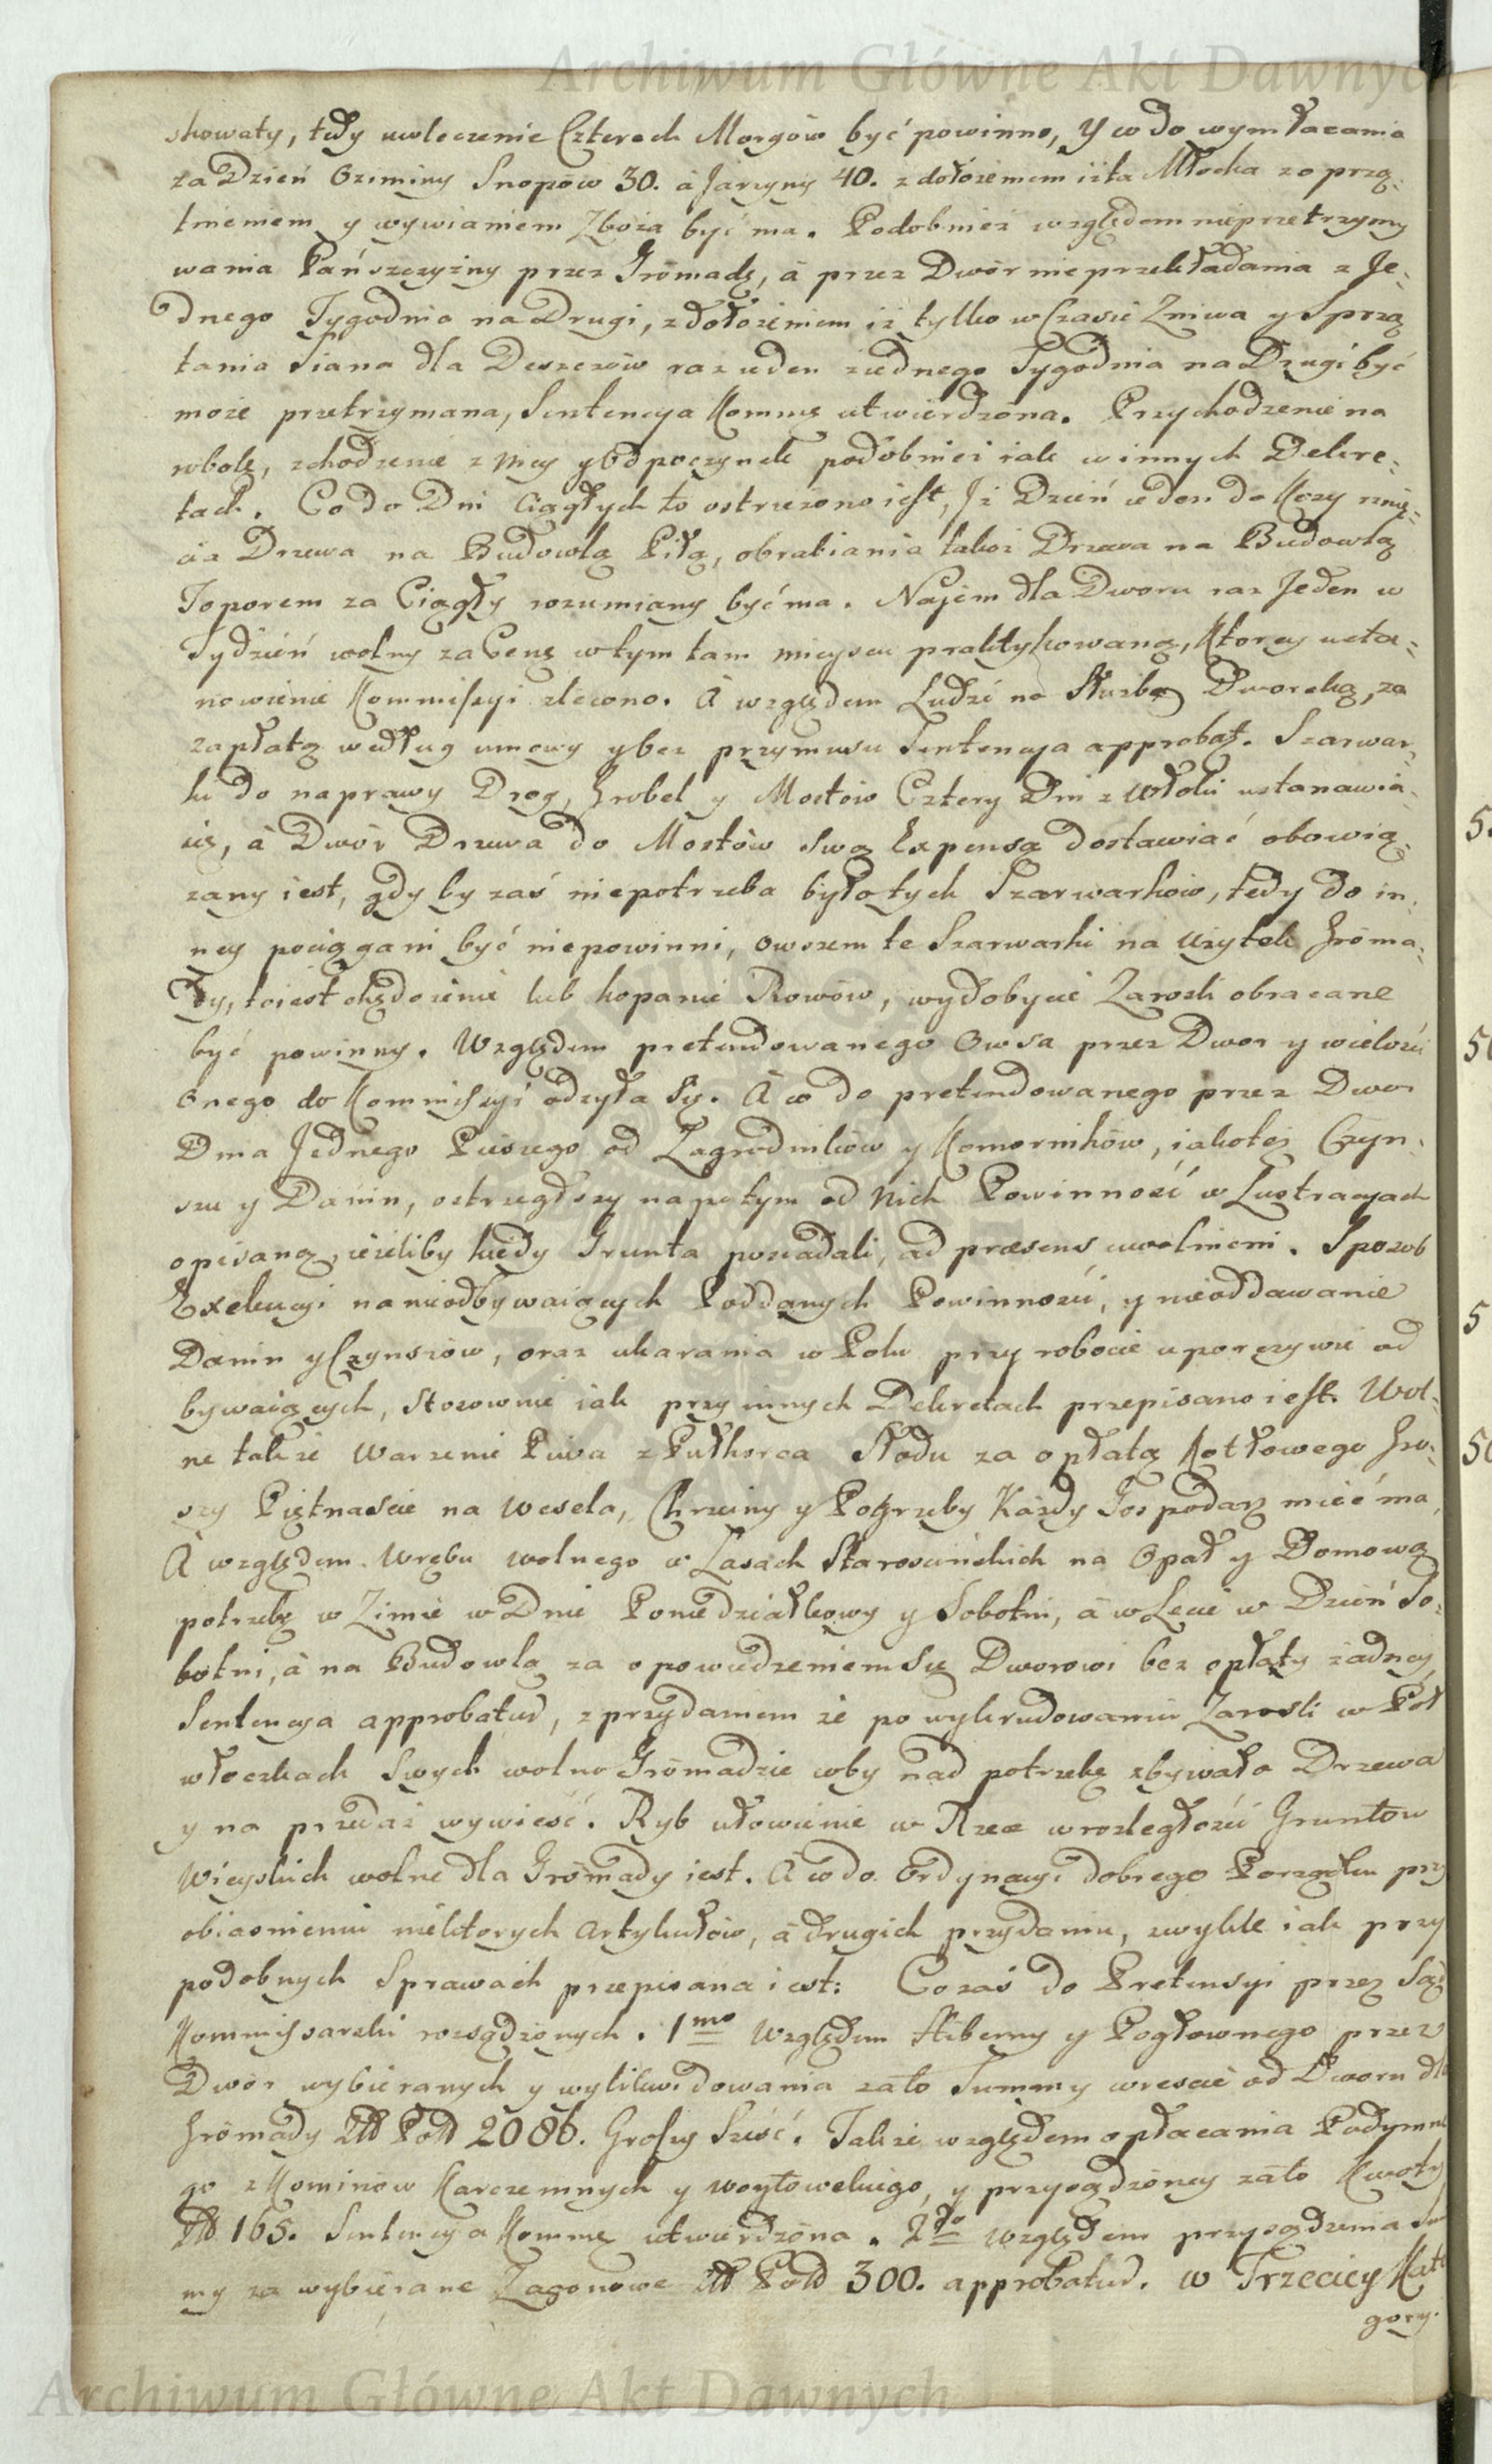 Archiwum Główne Akt Dawnych
skowaty, tedy uwłoczenie Czterech Morgów być powinno, Y co do wymłacania
za Dzień Oziminy Snopów 30. à Jarzyny 40. z dołożeniem iż ta Młocka z oprzą:
tnieniem y wywianiem Zboża być ma. Podobnież względem nieprzetrzymy
wania Pańszczyzny przez Gromadę, à przez Dwór nieprzekładania z Je:
dnego Tygodnia na Drugi, z dołożeniem iż tylko w Czasie Żniwa y Sprzą
tania Siana dla Deszczów raz ieden z iednego Tygodnia na Drugi być
może przetrzymana, Sentencya Kommis utwierdzona. Przychodzenie na
robotę, schodzenie z niey y Odpoczynek podobnież iak w innych Dekre:
tach. Co do Dni Ciągłych to ostrzeżono iest, Iż Dzień ieden do Kozy rznię:
cia Drzewa na Budowlą Piłą, obrabiania także Drzewa na Budowlą
Toporem za Ciągły rozumiany być ma. Najem dla Dworu raz Jeden w
Tydzień wolny za Cenę w tym tam mieyscu praktykowaną, Ktorey usta:
nowienie Kommissyi zlecono. À względem Ludzi na Służbę Dworską, za
zapłatą według umowy y bez przymusu Sentencya approbat. Szarwar:
ku do naprawy Drog, Grobel y Mostów Cztery Dni z Włoki ustanawia:
iąc, à Dwór Drzewa do Mostów swą Expensą dostawiać obowią:
zany iest, gdy by zaś niepotrzeba było tych Szarwarków, tedy do in:
ney pociągani być niepowinni, owszem te Szarwarki na użytek Groma:
dy, to iest chędożenie lub kopanie Rowów, wydobycie Zarosli obracane
być powinny. Względem pretendowanego Owsa przez Dwor y wielości
onego do Kommissyi odzyła się. À co do pretendowanego przez Dwor
Dnia Jednego Pieszego od Zagrodników y Komorników, iakoteż Czyn:
szu y Danin, ostrzegłszy napotym od Nich Powinność w Lustracyach
opisaną, ieżeliby kiedy Grunta posiadali, ad præsens uwolnieni. Sposob
Exekucyi na nieodbywaiących Poddanych Powinności, y nieoddawanie
Danin y Czynszów, oraz ukarania w Polu przy robocie uporczywie od
bywaiących, stosownie iak przy innych Dekretach przepisano iest. Wol:
ne także Warzenie Piwa z Pułkorca Słodu za opłatą Kotłowego Gro:
szy Piętnascie na Wesela, Chrzciny y Pogrzeby Każdy Gospodarz mieć ma,
À względem Wrębu wolnego w Lasach Starościńskich na Opał y Domową
potrzebę w Zimie w Dnie Poniedziałkowy y Sobotni, à w Lecie w Dzień So:
botni, à na Budowlą za opowiedzeniem się Dworowi bez opłaty żadney,
Sentencya approbatur, z przydaniem że po wykrudowaniu Zarosli w Pół
włoczkach Swych wolno Gromadzie coby nad potrzebę zbywało Drzewa
y na przedaż wywieść. Ryb ułowienie w Rzece w rozległości Gruntow
Wieyskich wolne dla Gromady iest. À co do Ordynacyi dobrego Porządku przy
obiasnieniu niektorych Artykułów, à drugich przydaniu, zwykle iak przy
podobnych Sprawach przepisana iest: Co zaś do Pretensyi przez Sąd
Kommissarski rozsądzonych. 1mo Względem Hiberny y Pogłownego przez
Dwór wybieranych y wylikwidowania zato Summy wrescie od Dworu dla
Gromady Zł Pol 2086. Groszy Sześć. Także względem opłacania Podymne
go z Kominów Karczemnych y woytowskiego, y przysądzoney zato Kwoty
Zł 165. Sentencya Kommę utwierdzona. 2do Względem przysądzenia Sum
my za wybierane Zagonowe Zł Pol 300. approbatur. w Trzeciey Kate
gory.
Archiwum Główne Akt Dawnych